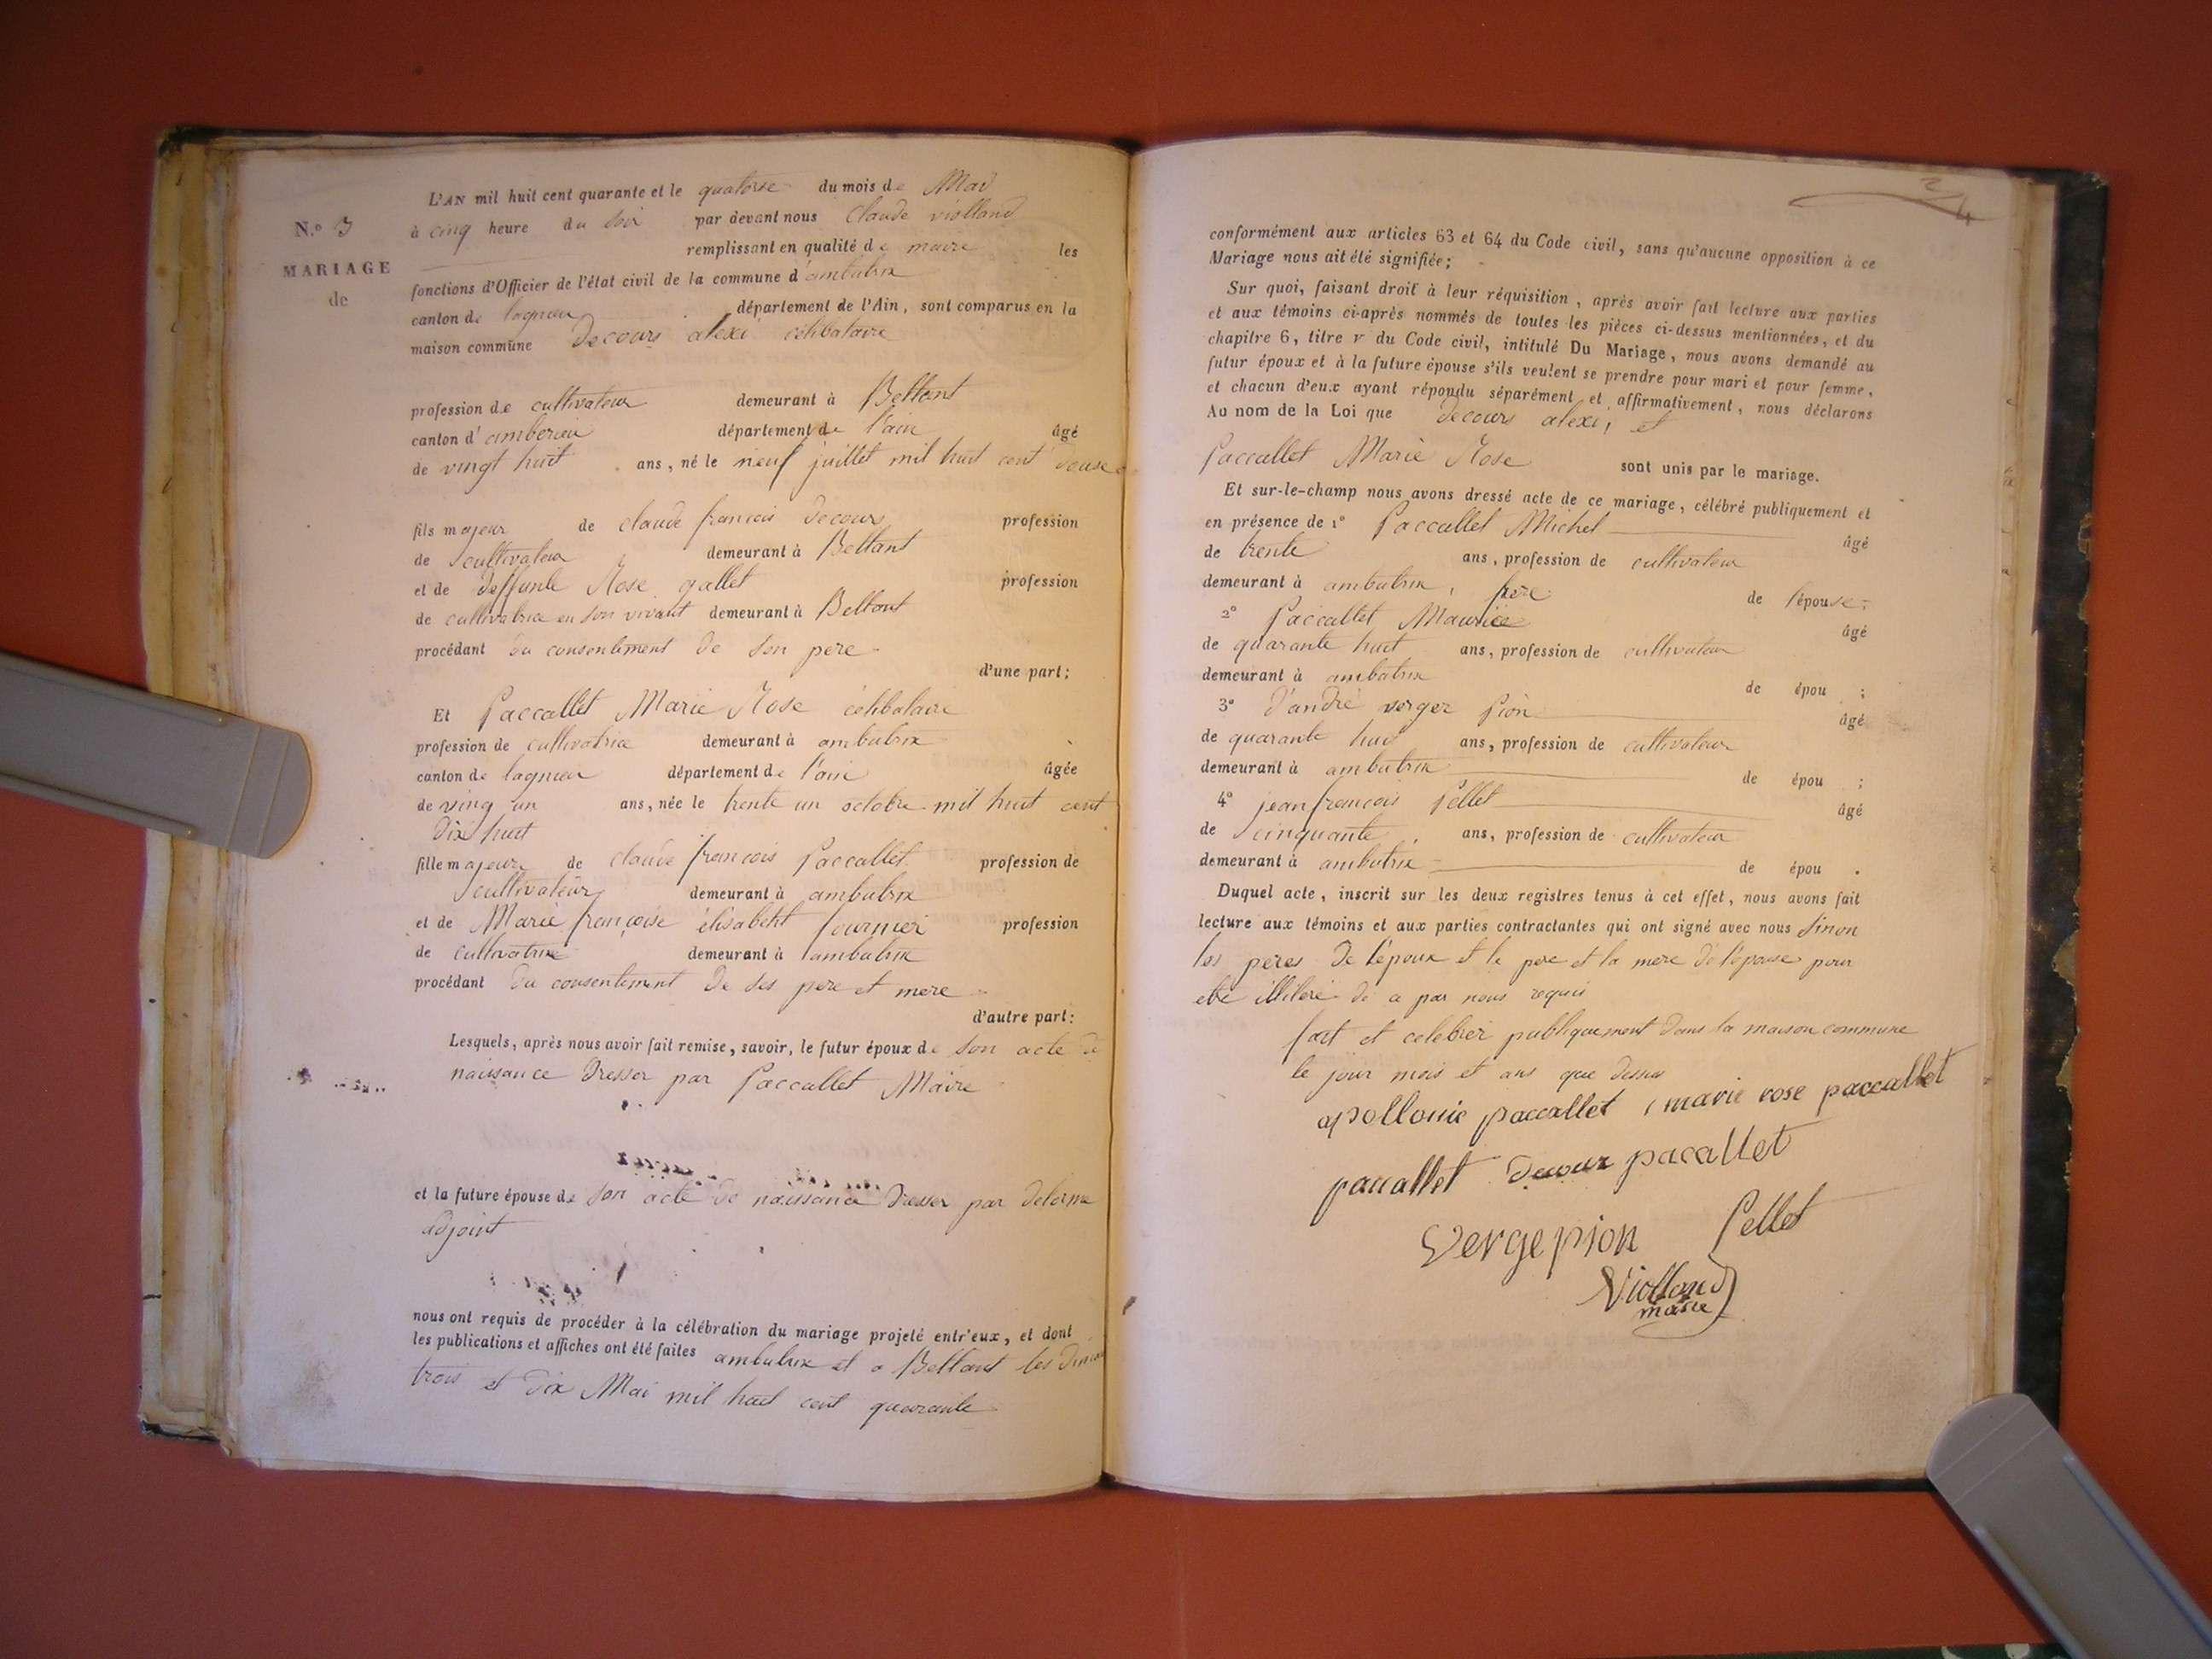 N.º 3
MARIAGE
de
L'AN mil huit cent quarante et le quatorse du mois de Mai
à cinq heure du soir par devant nous claude violland
remplissant en qualité de maire les
fonctions d'Officier de l'état civil de la commune d'ambutrix
canton de lagnieu département de l'Ain, sont comparus en la
maison commune Decours alexi célibataire
profession de cultivateur demeurant à Bettant
canton d'amberieu département de l'ain âgé
de vingt huit ans, né le neuf juillet mil huit cent douse
fils majeur de claude francois Decours profession
de cultivateur demeurant à Bettant
et de deffunte Rose gallet profession
de cultivatrice en son vivant demeurant à Bettant
procédant du consentement de son pere
d'une part;
Et Paccallet Marie Rose célibataire
profession de cultivatrice demeurant à ambutrix
canton de lagnieu département de l'ain âgée
de ving un ans, née le trente un octobre mil huit cent
dix huit
fille majeure de claude francois Paccallet profession de
cultivateur demeurant à ambutrix
et de Marie françoise élisabeht fournier profession
de cultivatrix demeurant à ambutrix
procédant du consentement de ses pere et mere
d'autre part:
Lesquels, après nous avoir fait remise, savoir, le futur époux de son acte de
naissance Dresser par Paccallet Maire
et la future épouse de son acte de naissance Dresser par delorme
adjoint
nous ont requis de procéder à la célébration du mariage projeté entr'eux, et dont
les publications et affiches ont été faites ambutrix et a Bettant les
trois et dix Mai mil huit cent quarante
conformément aux articles 63 et 64 du Code civil, sans qu'aucune opposition à ce
Mariage nous ait été signifiée;
Sur quoi, faisant droit à leur réquisition, après avoir fait lecture aux parties
et aux témoins ci-après nommés de toutes les pièces ci-dessus mentionnées, et du
chapitre 6, titre v du Code civil, intitulé Du Mariage, nous avons demandé au
futur époux et à la future épouse s'ils veulent se prendre pour mari et pour femme,
et chacun d'eux ayant répondu séparément et affirmativement, nous déclarons
Au nom de la Loi que Decours alexi, et
Paccallet Marie Rose sont unis par le mariage.
Et sur-le-champ nous avons dressé acte de ce mariage, célébré publiquement et
en présence de 1º Paccallet Michel âgé
de trente ans, profession de cultivateur
demeurant à ambutrix, frère de l'épouse;
2º Paccallet Maurice âgé
de quarante huit ans, profession de cultivateur
demeurant à ambutrix de épou ;
3º d'andré verger pion âgé
de quarante huit ans, profession de cultivateur
demeurant à ambutrix de épou ;
4º jean francois Pellet âgé
de cinquante ans, profession de cultivateur
demeurant à ambutrix de épou .
Duquel acte, inscrit sur les deux registres tenus à cet effet, nous avons fait
lecture aux témoins et aux parties contractantes qui ont signé avec nous sinon
les peres de l'époux et le pere et la mere de l'épouse pour
etre illiteré de ce par nous requis
fait et celebrer publiquement dans la maison commune
le jour mois et ans que dessus
apollonie paccallet marie rose paccallet
pacallet Decour pacallet
Vergepion Pellet
Violland
maire